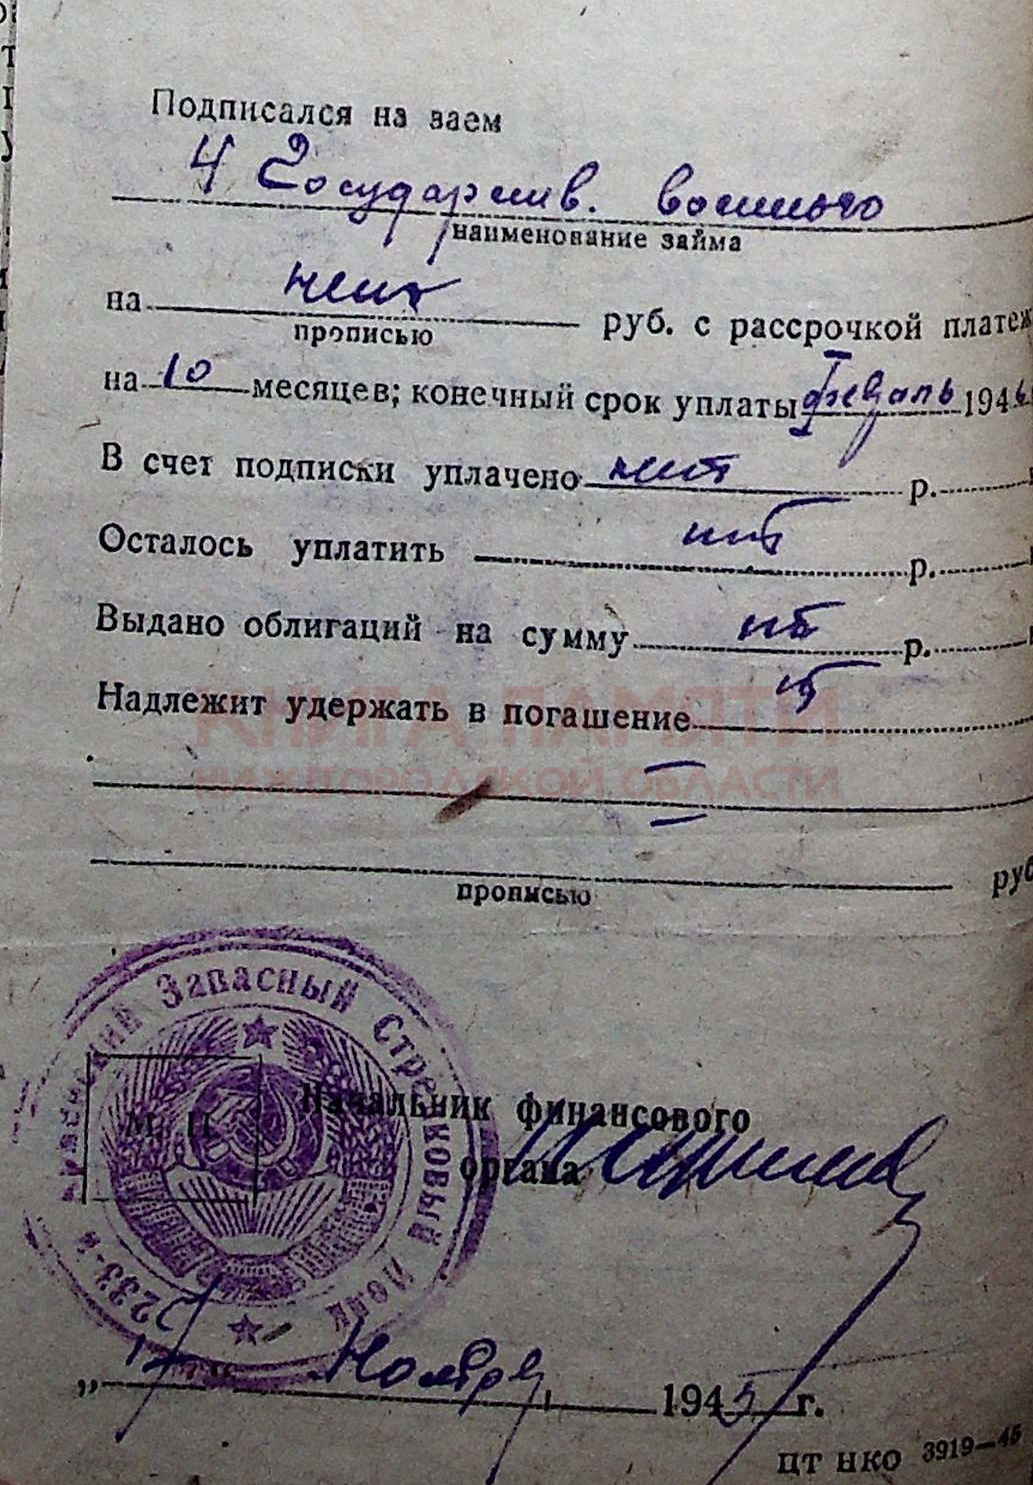 Подписался на заем
4 Государств. военного
наименование займа
на нет руб. с рассрочкой платеж
прописью
на 10 месяцев; конечный срок уплаты февраль 194
В счет подписки уплачено нет р.
Осталось уплатить нет р.
Выдано облигаций на сумму нет р.
Надлежит удержать в погашение
КНИГА ПАМЯТИ
НИЖЕГОРОДСКОЙ ОБЛАСТИ
руб
прописью
Запасный Стрелковый Полк
233-й
М. П.
Начальник финансового
органа
„17“ Ноября 1945 г.
цт нко 3919—45